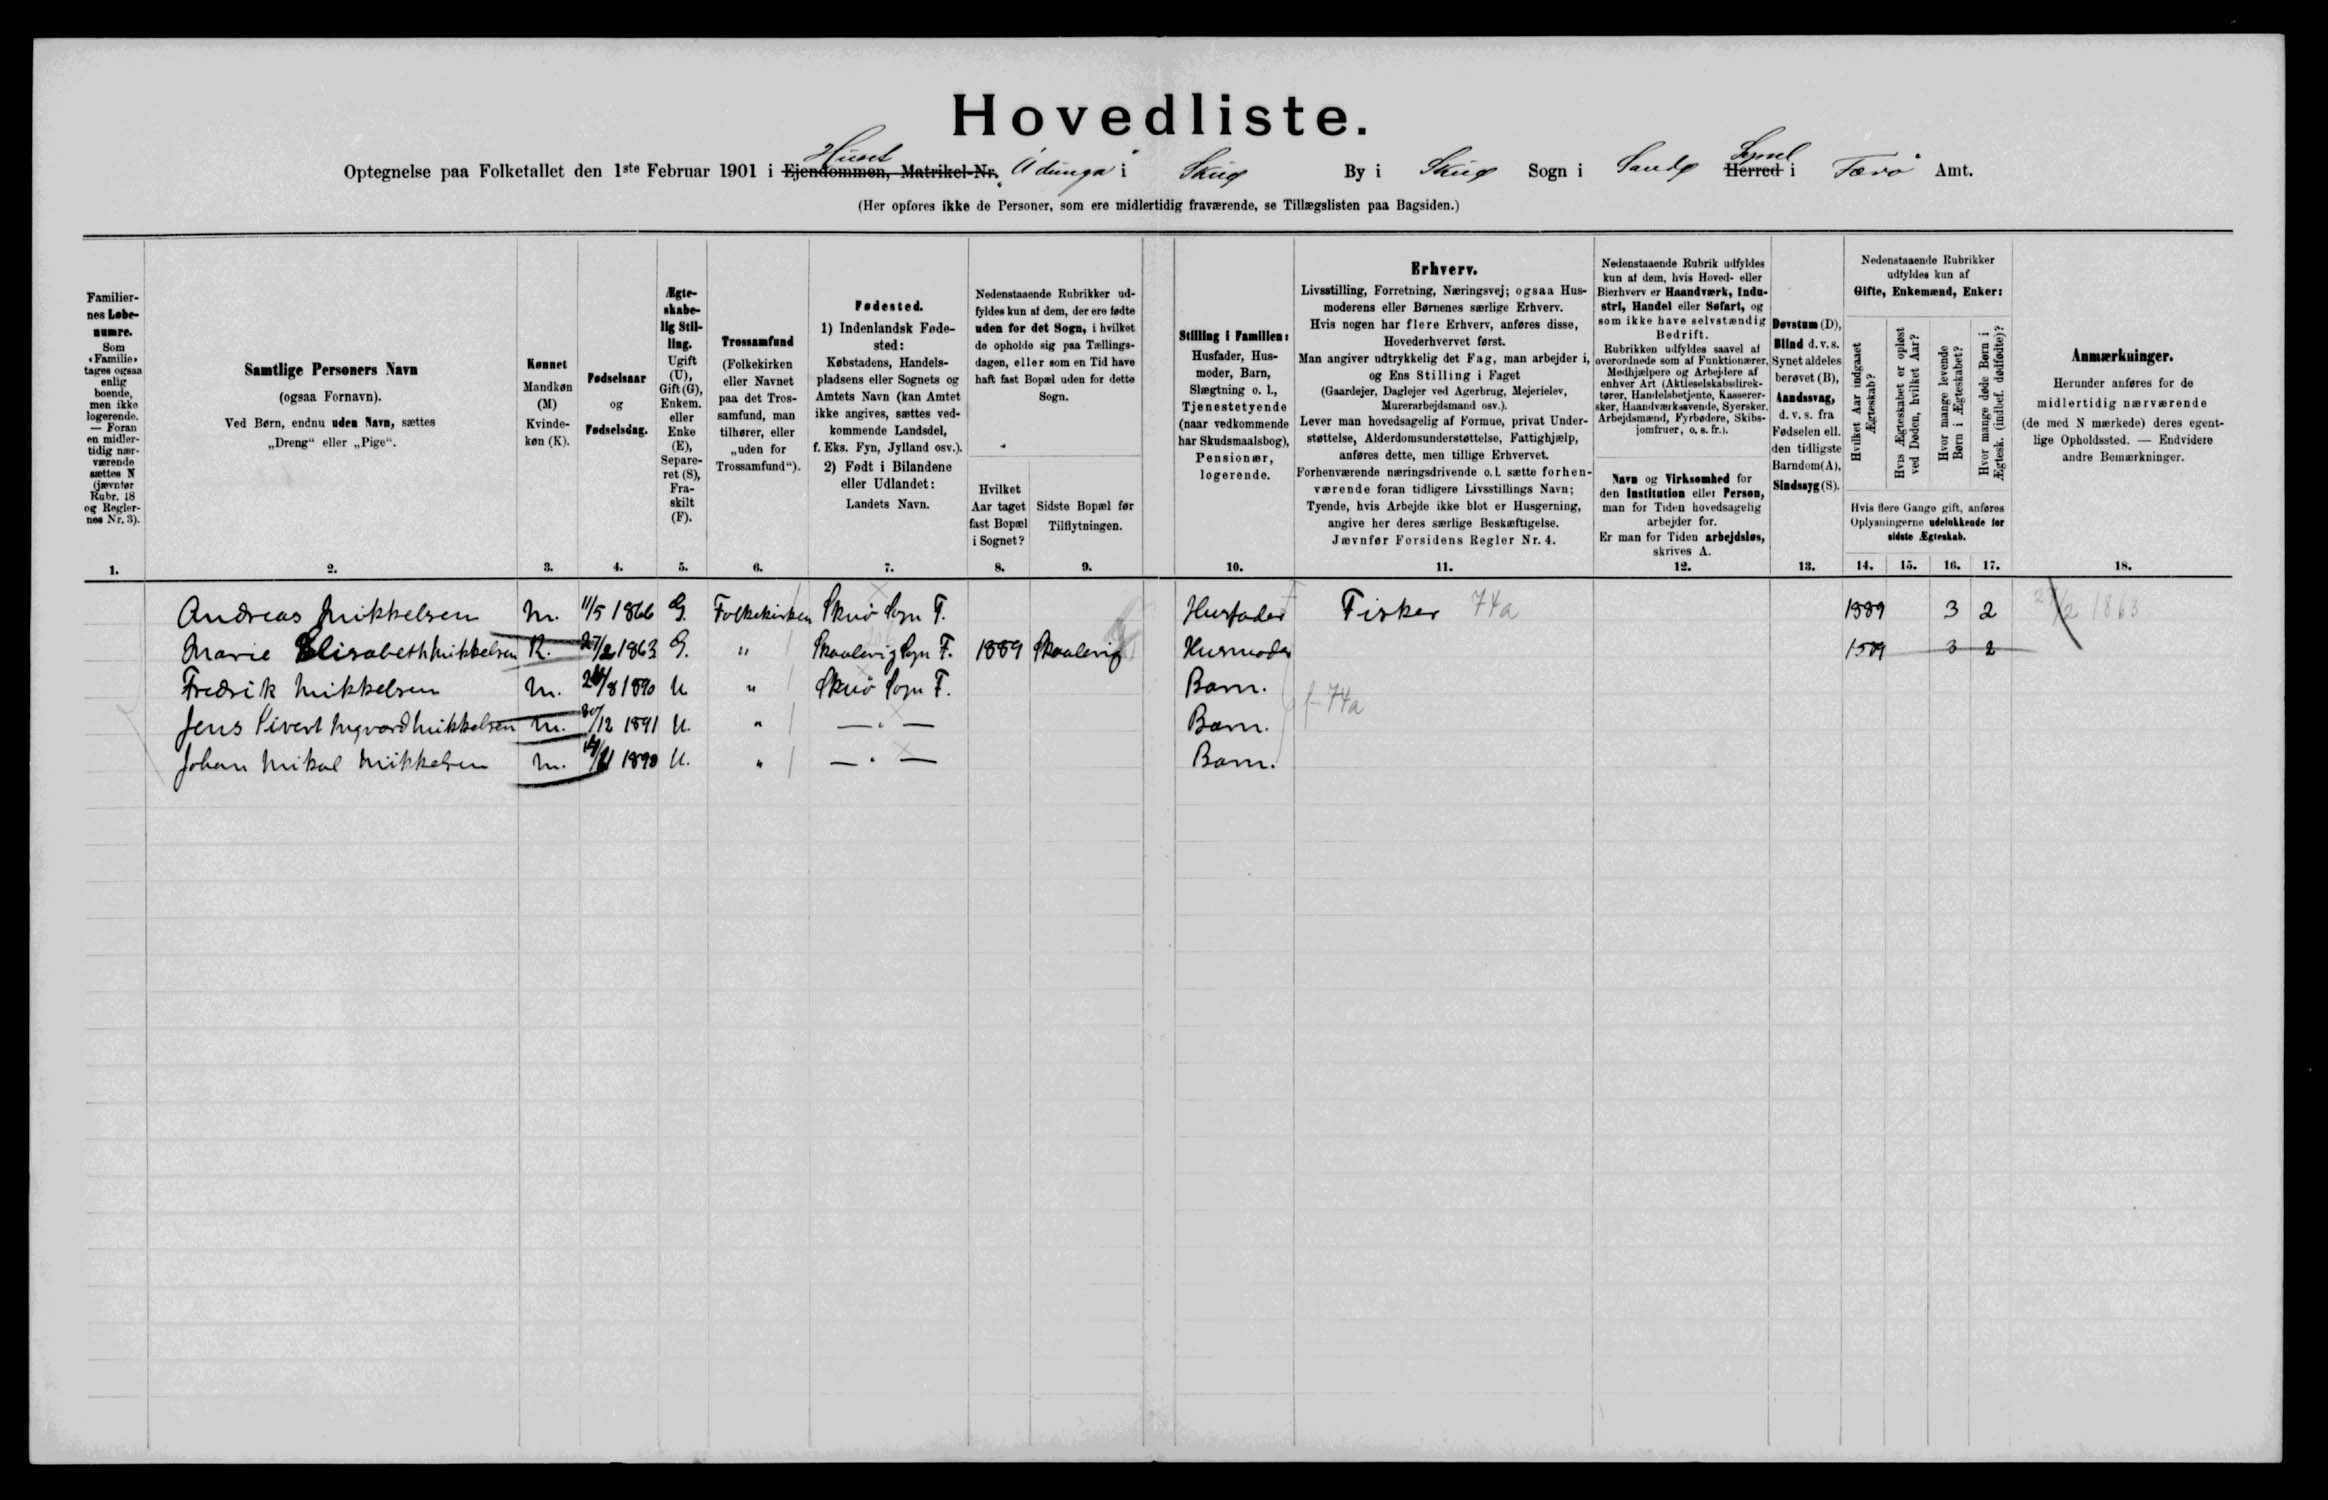 Hovedliste.
Optegnelse paa Folketallet den 1ste Februar 1901 i Ejendommen, Matrikel-Nr. Huset Ádunga i Skuø By i Skuø Sogn i Sandø Herred Syssel i Færø Amt.
(Her opføres ikke de Personer, som ere midlertidig fraværende, se Tillægslisten paa Bagsiden.)
Familiernes Løbenumre.
Som «Familie» tages ogsaa enlig boende, men ikke logerende. — Foran en midlertidig nærværende sættes N (jævnfør Rubr. 18 og Reglernes Nr. 3).
Samtlige Personers Navn
(ogsaa Fornavn).
Ved Børn, endnu uden Navn, sættes
„Dreng“ eller „Pige“.
Kønnet
Mandkøn
(M)
Kvinde-
køn (K).
Fødselsaar
og
Fødselsdag.
Ægte-
skabe-
lig Stil-
ling.
Ugift
(U),
Gift (G),
Enkem.
eller
Enke
(E),
Separe-
ret (S),
Fra-
skilt
(F).
Trossamfund
(Folkekirken
eller Navnet
paa det Tros-
samfund, man
tilhører, eller
„uden for
Trossamfund“).
Fødested.
1) Indenlandsk Føde-
sted:
Købstadens, Handels-
pladsens eller Sognets og
Amtets Navn (kan Amtet
ikke angives, sættes ved-
kommende Landsdel,
f. Eks. Fyn, Jylland osv.).
2) Født i Bilandene
eller Udlandet:
Landets Navn.
Nedenstaaende Rubrikker ud-
fyldes kun af dem, der ere fødte
uden for det Sogn, i hvilket
de opholde sig paa Tællings-
dagen, eller som en Tid have
haft fast Bopæl uden for dette
Sogn.
Hvilket
Aar taget
fast Bopæl
i Sognet?
Sidste Bopæl før
Tilflytningen.
Stilling i Familien:
Husfader, Hus-
moder, Barn,
Slægtning o. l.,
Tjenestetyende
(naar vedkommende
har Skudsmaalsbog),
Pensionær,
logerende.
Erhverv.
Livsstilling, Forretning, Næringsvej; ogsaa Hus-
moderens eller Børnenes særlige Erhverv.
Hvis nogen har flere Erhverv, anføres disse,
Hovederhvervet først.
Man angiver udtrykkelig det Fag, man arbejder i,
og Ens Stilling i Faget
(Gaardejer, Daglejer ved Agerbrug, Mejerielev,
Murerarbejdsmand osv.).
Lever man hovedsagelig af Formue, privat Under-
støttelse, Alderdomsunderstøttelse, Fattighjælp,
anføres dette, men tillige Erhvervet.
Forhenværende næringsdrivende o. l. sætte forhen-
værende foran tidligere Livsstillings Navn;
Tyende, hvis Arbejde ikke blot er Husgerning,
angive her deres særlige Beskæftigelse.
Jævnfør Forsidens Regler Nr. 4.
Nedenstaaende Rubrik udfyldes
kun af dem, hvis Hoved- eller
Bierhverv er Haandværk, Indu-
stri, Handel eller Søfart, og
som ikke have selvstændig
Bedrift.
Rubrikken udfyldes saavel af
overordnede som af Funktionærer,
Medhjælpere og Arbejdere af
enhver Art (Aktieselskabsdirek-
tører, Handelsbetjente, Kasserer-
sker, Haandværkssvende, Syersker,
Arbejdsmænd, Fyrbødere, Skibs-
jomfruer, o. s. fr.).
Navn og Virksomhed for
den Institution eller Person,
man for Tiden hovedsagelig
arbejder for.
Er man for Tiden arbejdsløs,
skrives A.
Døvstum (D),
Blind d. v. s.
Synet aldeles
berøvet (B),
Aandssvag,
d. v. s. fra
Fødselen ell.
den tidligste
Barndom (A),
Sindssyg (S).
Nedenstaaende Rubrikker
udfyldes kun af
Gifte, Enkemænd, Enker:
Hvilket Aar indgaaet Ægteskab?
Hvis Ægteskabet er opløst ved Døden, hvilket Aar?
Hvor mange levende Børn i Ægteskabet?
Hvor mange døde Børn i Ægtesk. (indbef. dødfødte)?
Hvis flere Gange gift, anføres
Oplysningerne udelukkende for
sidste Ægteskab.
Anmærkninger.
Herunder anføres for de
midlertidig nærværende
(de med N mærkede) deres egent-
lige Opholdssted. — Endvidere
andre Bemærkninger.
1. 2. 3. 4. 5. 6. 7. 8. 9. 10. 11. 12. 13. 14. 15. 16. 17. 18.
Andreas Mikkelsen M. 11/5 1866 G. Folkekirken Skuø Sogn F. Husfader Fisker 74a 1889 3 2 27/2 1863
Marie Elisabeth Mikkelsen K. 27/2 1863 G. " Skaalevig Sogn F. 1889 Skaalevig Husmoder 1889 3 2
Fredrik Mikkelsen M. 1890 U " Skuø Sogn F. Barn. f-74a
Jens Sivert Ingvard Mikkelsen M. 30/12 1891 U. " — " — Barn.
Johan Mikal Mikkelsen M. U. " — " — Barn.